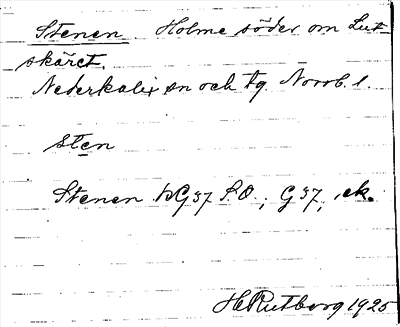 Stenen. Holme söder om Lut-
skäret.
Nederkalix sn och tg. Norrb. l.
sten
Stenen bG37 S.O., G37, ek.
H. Rutborg 1925